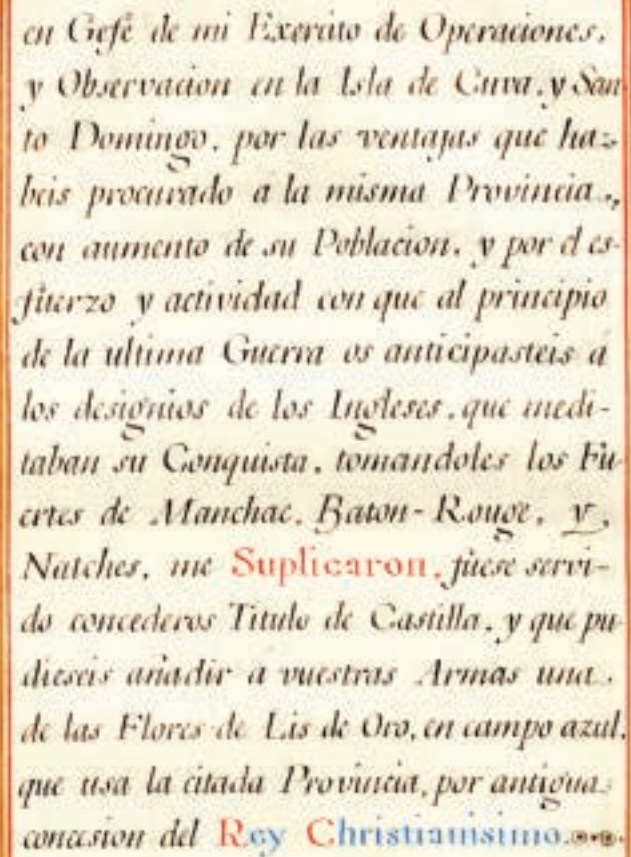 en Gefe de mi Exercito de Operaciones,
y Observacion en la Isla de Cuva, y San-
to Domingo, por las ventajas que ha=
beis procurado a la misma Provincia,
con aumento de su Poblacion, y por el es-
fuerzo y actividad con que al principio
de la ultima Guerra os anticipasteis á
los designios de los Ingleses, que medi-
taban su Conquista, tomandoles los Fu-
ertes de Manchac, Baton-Rouge, y
Natches, me Suplicaron, fuese servi-
do concederos Titulo de Castilla, y que pu-
dieseis añadir a vuestras Armas una
de las Flores de Lis de Oro, en campo azul,
que usa la citada Provincia, por antigua
concesion del Rey Christianisimo.